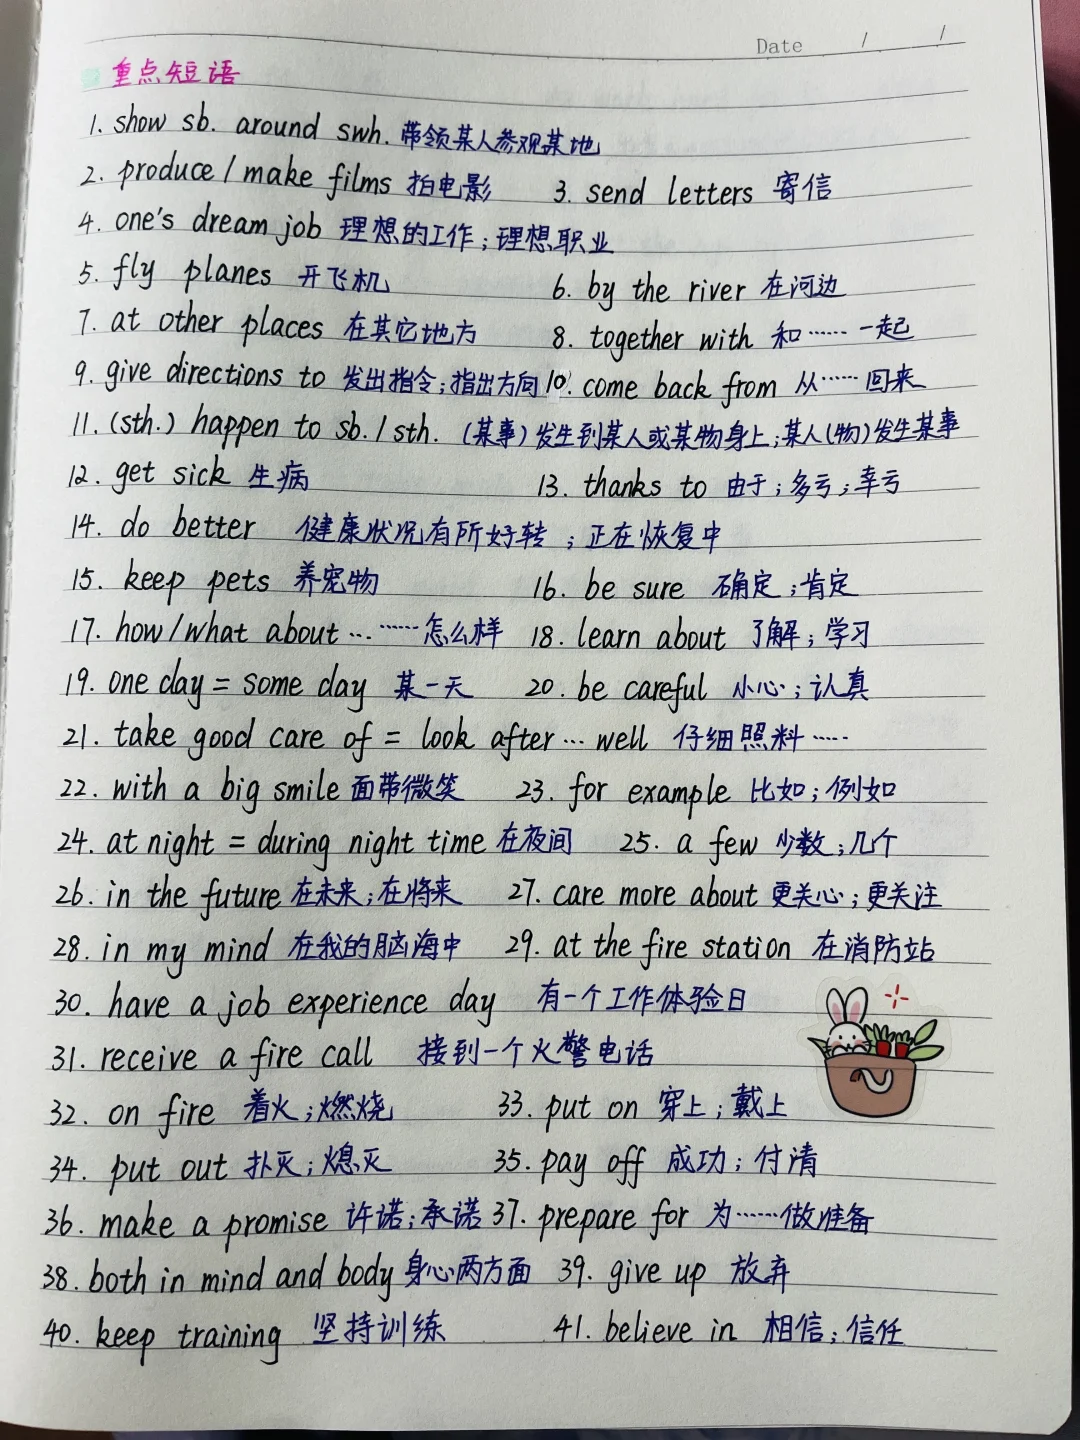 Date / /
重点短语
1. show sb. around swh. 带领某人参观某地
2. produce / make films 拍电影 3. send letters 寄信
4. one's dream job 理想的工作；理想职业
5. fly planes 开飞机 6. by the river 在河边
7. at other places 在其它地方 8. together with 和……一起
9. give directions to 发出指令；指出方向 10. come back from 从……回来
11. (sth.) happen to sb. / sth. (某事) 发生到某人或某物身上；某人(物)发生某事
12. get sick 生病 13. thanks to 由于；多亏；幸亏
14. do better 健康状况有所好转；正在恢复中
15. keep pets 养宠物 16. be sure 确定；肯定
17. how/what about … ……怎么样 18. learn about 了解；学习
19. one day = some day 某一天 20. be careful 小心；认真
21. take good care of = look after … well 仔细照料……
22. with a big smile 面带微笑 23. for example 比如；例如
24. at night = during night time 在夜间 25. a few 少数；几个
26. in the future 在未来；在将来 27. care more about 更关心；更关注
28. in my mind 在我的脑海中 29. at the fire station 在消防站
30. have a job experience day 有一个工作体验日
31. receive a fire call 接到一个火警电话
32. on fire 着火；燃烧 33. put on 穿上；戴上
34. put out 扑灭；熄灭 35. pay off 成功；付清
36. make a promise 许诺；承诺 37. prepare for 为……做准备
38. both in mind and body 身心两方面 39. give up 放弃
40. keep training 坚持训练 41. believe in 相信；信任